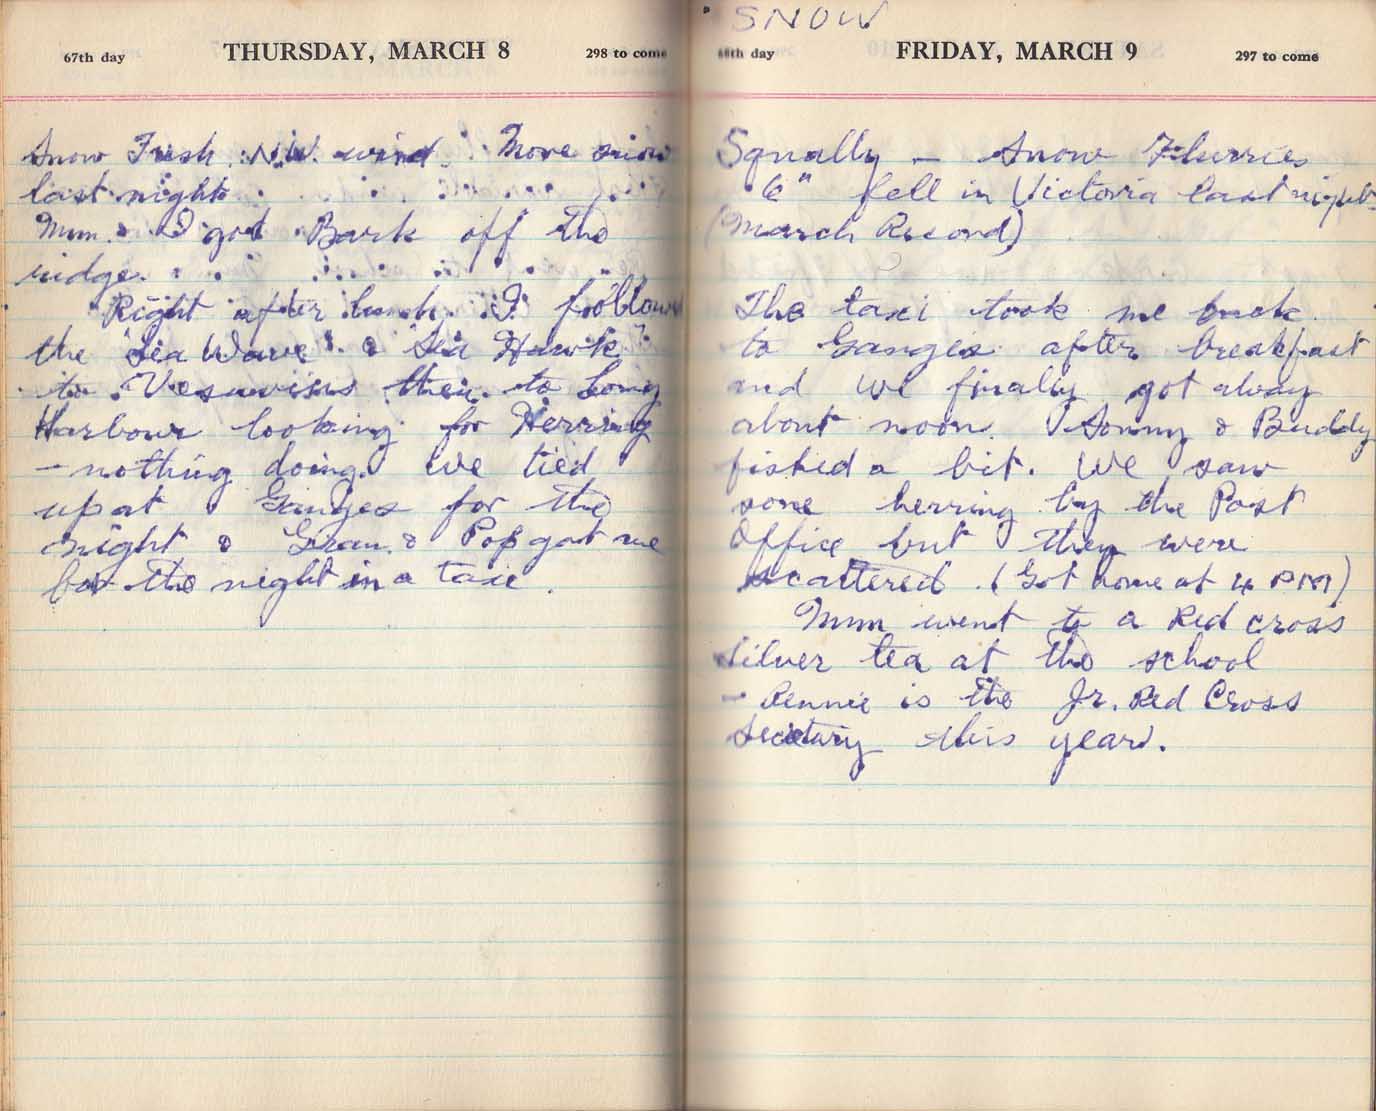 67th day THURSDAY, MARCH 8 298 to come
Snow Fresh N.W. wind. More snow
last night.
Mum & I got Bark off the
ridge.
Right after lunch I follow
the "Sea Wave" & "Sea Hawk"
to Vesuvius then to Long
Harbour looking for Herring
- nothing doing. We tied
up at Ganges for the
night & Gran & Pop got me
for the night in a taxi.
SNOW
68th day FRIDAY, MARCH 9 297 to come
Squally - Snow Flurries
6" fell in Victoria last night
(March Record)
The taxi took me back
to Ganges after breakfast
and we finally got away
about noon. Sonny & Buddy
fished a bit. We saw
some herring by the Post
Office but they were
scattered. (Got home at 4 PM)
Mum went to a Red Cross
Silver tea at the school
- Rennie is the Jr. Red Cross
this year.